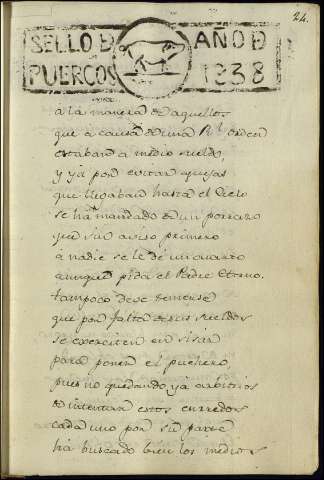 24.
SELLO D AÑO D
PUERCOS 1238
á la manera de aquellos
que á causa de una Rl. orden
estaban a medio sueldo,
y ya por evitar quejas
que llegaban hasta el Cielo
se ha mandado de un porrazo
que sin aviso primero
á nadie se le dé un quarto
aunque pida el Padre Eterno.
tampoco deve temerse
que por falta de sus sueldos
se exerciten en sisar
para poner el puchero,
pues no quedando ya arbitrios
de intentar estos enredos
cada uno por su parte
há buscado bien los medios